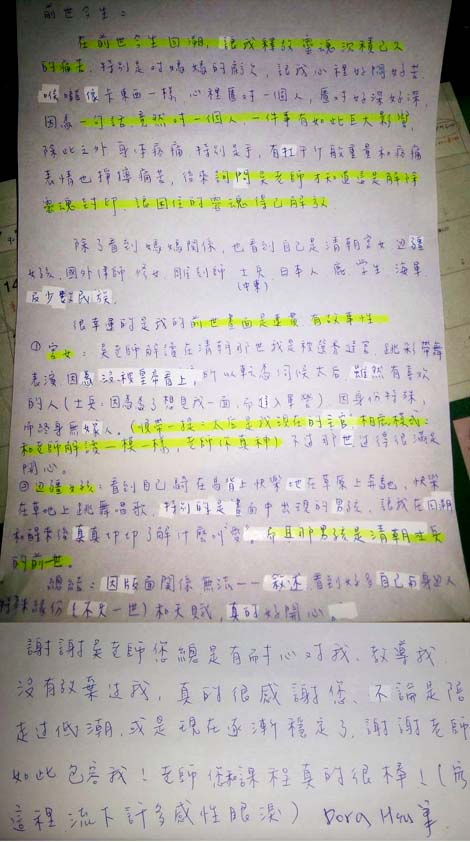 前世今生:
在前世今生回溯,讓我釋放靈魂沉積已久
的痛苦,特別是對媽媽的虧欠,讓我心裡好悶好苦
喉嚨像卡東西一樣,心裡虧對一個人,虧對好深好深,
因為一句話竟然對一個人一件事有如此巨大影響,
除此之外身体疼痛,特別是手,有扛千斤般重量和疼痛
表情也猙獰痛苦,後來詢問吳老師才知道這是解除
靈魂封印,讓困住的靈魂得已解放
除了看到媽媽關係,也看到自己是清朝宮女、邊疆
女孩、國外律師、修女、雕刻師、士兵、日本人、鹿、學生、海軍
(中東)
及少數民族。
很幸運的是我的前世畫面是連貫、有故事性
①宮女:吳老師解讀在清朝那世我是被選秀進宮,跳彩帶舞
表演,因為沒被皇帝看上,所以轉為伺候太后,雖然有喜歡
的人(士兵:因為為了想見我一面,而進入軍營)因身份特殊,
而終身無嫁人。(順帶一提:太后是我現在的主管,相處模式
和老師解讀一模一樣,老師你真神)不過那世過得很滿足
開心。
②邊疆女孩:看到自己騎在馬背上快樂地在草原上奔馳,快樂
在草地上跳舞唱歌,特別的是畫面中出現的男孩,讓我在回溯
和醒來後真真切切了解什麼叫"愛"。而且那男孩是清朝士兵
的前世。
總結:因版面關係無法一一敘述,看到好多自己與身邊人
特殊緣份(不只一世)和天賦,真的好開心。
謝謝吳老師您總是有耐心對我、教導我
沒有放棄過我,真的很感謝您、不論是陪
走過低潮,或是現在逐漸穩定了,謝謝老師
如此包容我!老師您和課程真的很棒!(寫
這裡流下許多感性眼淚) Dora Hsu 筆